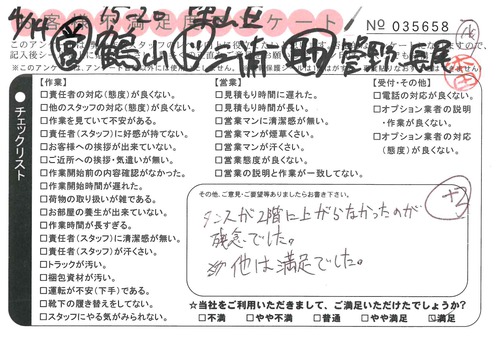 4/14 15-20
お客様不満足度アンケート
No 035658
営 鶴山 三浦 助 菅野
●チェックリスト
【作業】
□責任者の対応(態度)が良くない。
□他のスタッフの対応(態度)が良くない。
□作業を見ていて不安がある。
□責任者(スタッフ)に好感が持てない。
□お客様への挨拶が出来ていない。
□ご近所への挨拶・気遣いが無い。
□作業開始前の内容確認がなかった。
□作業開始時間が遅れた。
□荷物の取り扱いが雑である。
□お部屋の養生が出来ていない。
□作業時間が長すぎる。
□責任者(スタッフ)に清潔感が無い。
□責任者(スタッフ)が汗くさい。
□トラックが汚い。
□梱包資材が汚い。
□運転が不安(下手)である。
□靴下の履き替えをしてない。
□スタッフにやる気がみられない。
【営業】
□見積もり時間に遅れた。
□見積もり時間が長い。
□営業マンに清潔感が無い。
□営業マンが煙草くさい。
□営業マンが汗くさい。
□営業態度が良くない。
□営業の説明と作業が一致してない。
【受付・その他】
□電話の対応が良くない。
□オプション業者の説明
・作業が良くない。
□オプション業者の対応
(態度)が良くない。
その他、ご意見・ご要望等ありましたらお書き下さい。
タンスが2階に上がらなかったのが
残念でした。
他は満足でした。
☆当社をご利用いただきまして、ご満足いただけたでしょうか?
□不満 □やや不満 □普通 □やや満足 ☑満足